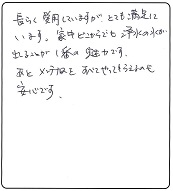 長らく愛用していますが とても満足して
います。家中どこからでも 浄水の水が
出ることが 1番の 魅力です。
あと メンテナンスを すべてやってもらえるのも
安心です。